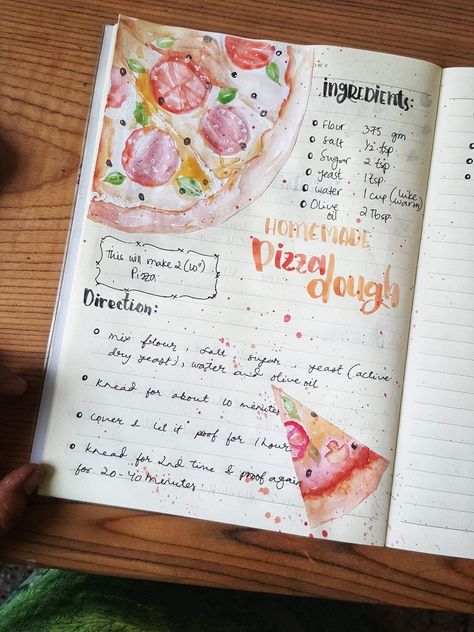 ORY
ingredients:
flour 375 gm
salt ½ tsp
Sugar 2 tsp
yeast 1 tsp
water 1 cup (luke warm)
Olive oil 2 Tbsp
HOMEMADE
Pizza
dough
This will make 2 (10")
Pizza
Direction:
mix flour, salt, sugar, yeast (active
dry yeast), water and olive oil
knead for about 10 minutes
cover & let it proof for 1 hour
knead for 2nd time & proof again
for 20-40 minutes